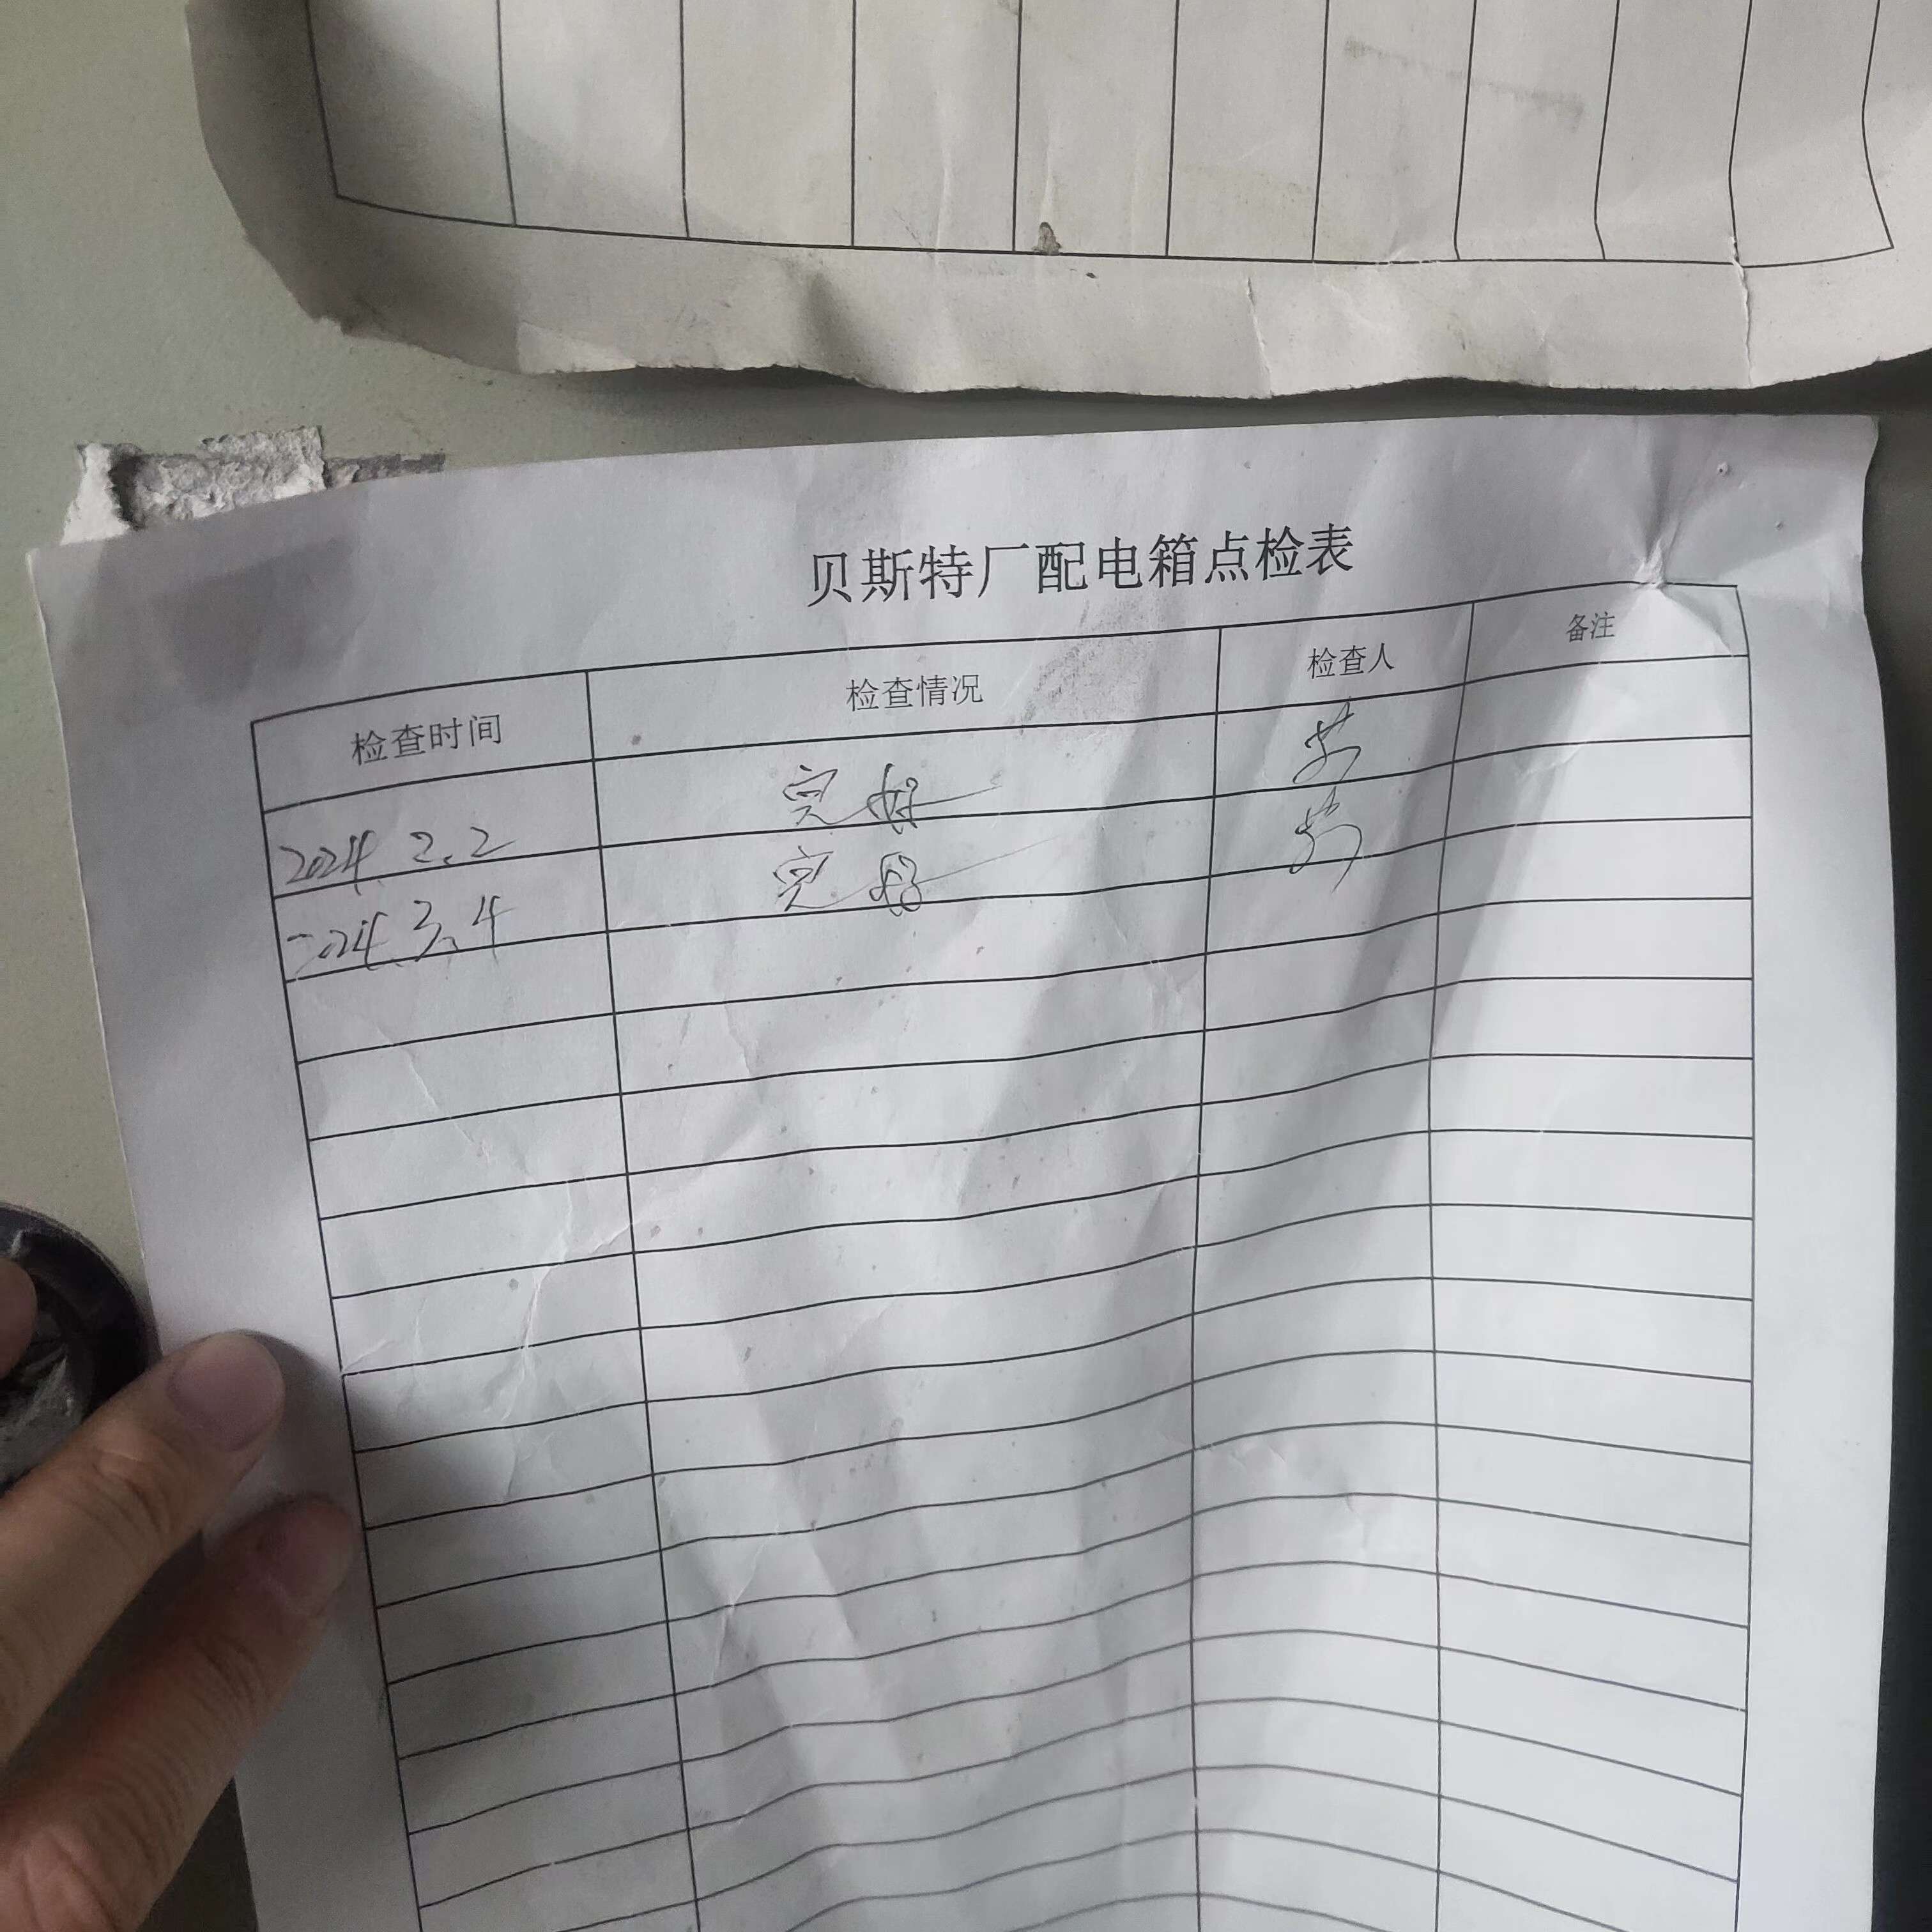 贝斯特厂配电箱点检表
检查时间 检查情况 检查人 备注
2024.2.2 完好
2024.3.4 完好